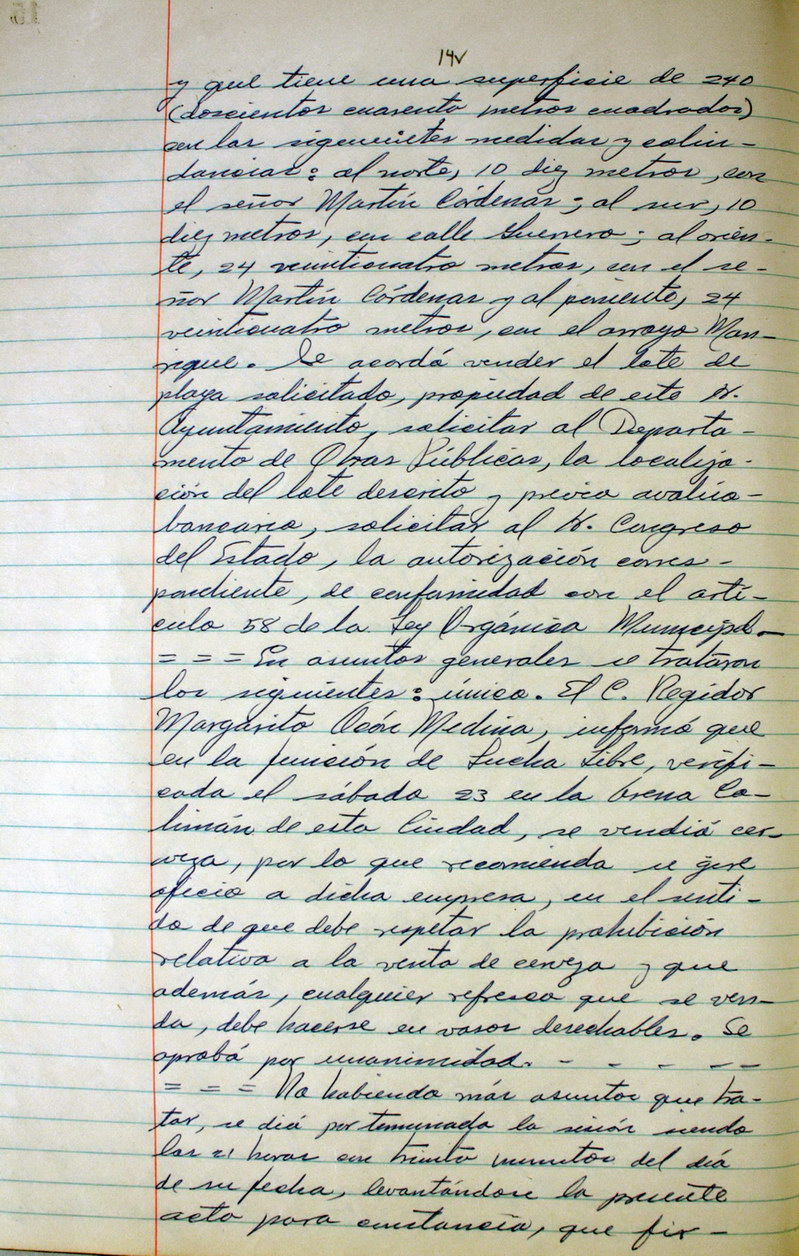 14v
y que tiene una superficie de 240
(doscientos cuarenta metros cuadrados)
con las siguientes medidas y colin-
dancias: al norte, 10 diez metros, con
el señor Martín Cárdenas; al sur, 10
diez metros, con calle Guerrero; al orien-
te, 24 veinticuatro metros, con el se-
ñor Martín Cárdenas y al poniente, 24
veinticuatro metros, con el arroyo Man-
rique. Se acordó vender el lote de
playa solicitado, propiedad de este H.
Ayuntamiento, solicitar al Departa-
mento de Obras Públicas, la localiza-
ción del lote descrito y previo avalúo
bancario, solicitar al H. Congreso
del Estado, la autorización corres-
pondiente, de conformidad con el artí-
culo 58 de la Ley Orgánica Municipal.
= = = En asuntos generales se trataron
los siguientes: único. El C. Regidor
Margarito Ocón Medina, informó que
en la función de Lucha Libre, verifi-
cada el sábado 23 en la Arena Co-
limán de esta Ciudad, se vendió cer-
veza, por lo que recomienda se gire
oficio a dicha empresa, en el senti-
do de que debe respetar la prohibición
relativa a la venta de cerveza y que
además, cualquier refresco que se ven-
da, debe hacerse en vasos desechables. Se
aprobó por unanimidad. - - - - -
= = = No habiendo más asuntos que tra-
tar, se dió por terminada la sesión siendo
las 21 horas con treinta minutos del día
de su fecha, levantándose la presente
acta para constancia, que fir-